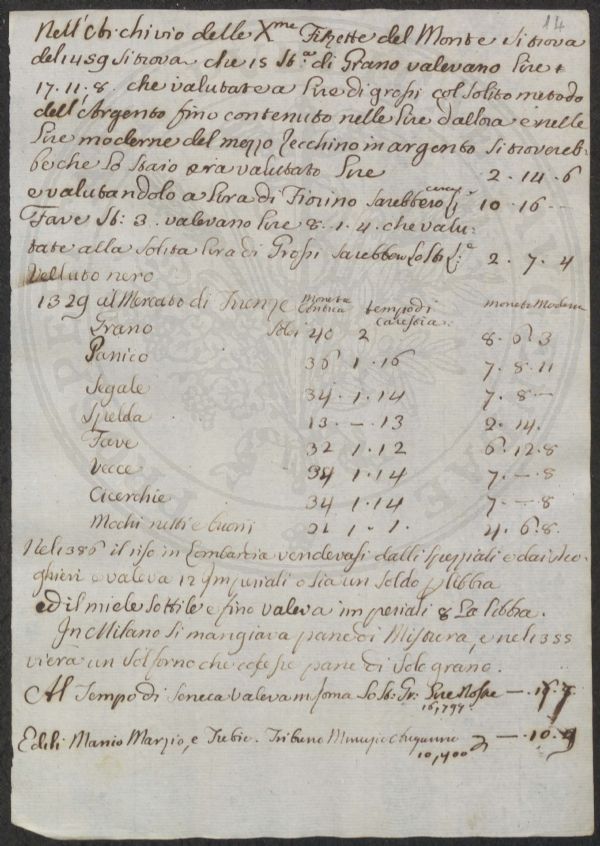 14
Nell'Archivio delle Xme Fichette del Monte si trova
del 1459 si trova che 15 St.a di Grano valevano Lire
17. 11. 8. che valutate a Lire di grossi col solito metodo
dell'Argento fino contenuto nelle Lire d'allora e nelle
Lire moderne del mezzo Zecchino in argento si trovereb-
be che lo staio era valutato Lire 2. 14. 6
e valutandolo a Lira di Fiorino sarebbero circa 10. 16 —
Fave St: 3. valevano Lire 8. 1. 4. che valu-
tate alla solita Lira di Grossi sarebbero lo St: 2. 7. 4
Velluto nero
1329 al Mercato di Firenze Moneta Contica tempo di carestia: moneta Moderna
Grano Soldi 40 2 8. 6. 3
Panico 36 1. 16 7. 8. 11
Segale 34. 1. 14 7. 8 —
Spelda 13. — . 13 2. 14.
Fave 32 1. 12 6. 12. 8
Vecce 34 1. 14 7. — . 8
Cicerchie 34 1. 14 7. — 8
Mochi netti e buoni 21 1. 1. 4. 6. 8.
Nel 1386 il riso in Lombardia vendevasi dalli speziali e dai
ghieri e valeva 12 Imperiali o sia un soldo p libbra
ed il miele sottile e fino valeva imperiali 8 La libbra.
In Milano si mangiava pane di Mistura, e nel 1355
viera un sol forno che cosesse pane di solo grano.
Al Tempo di Seneca valeva in Roma lo St: Gr: Lire Nostre —
16,797
Edili Manio Marzio, e Trebio. Tribuno Minuzio Augurino — . 10.
10,400